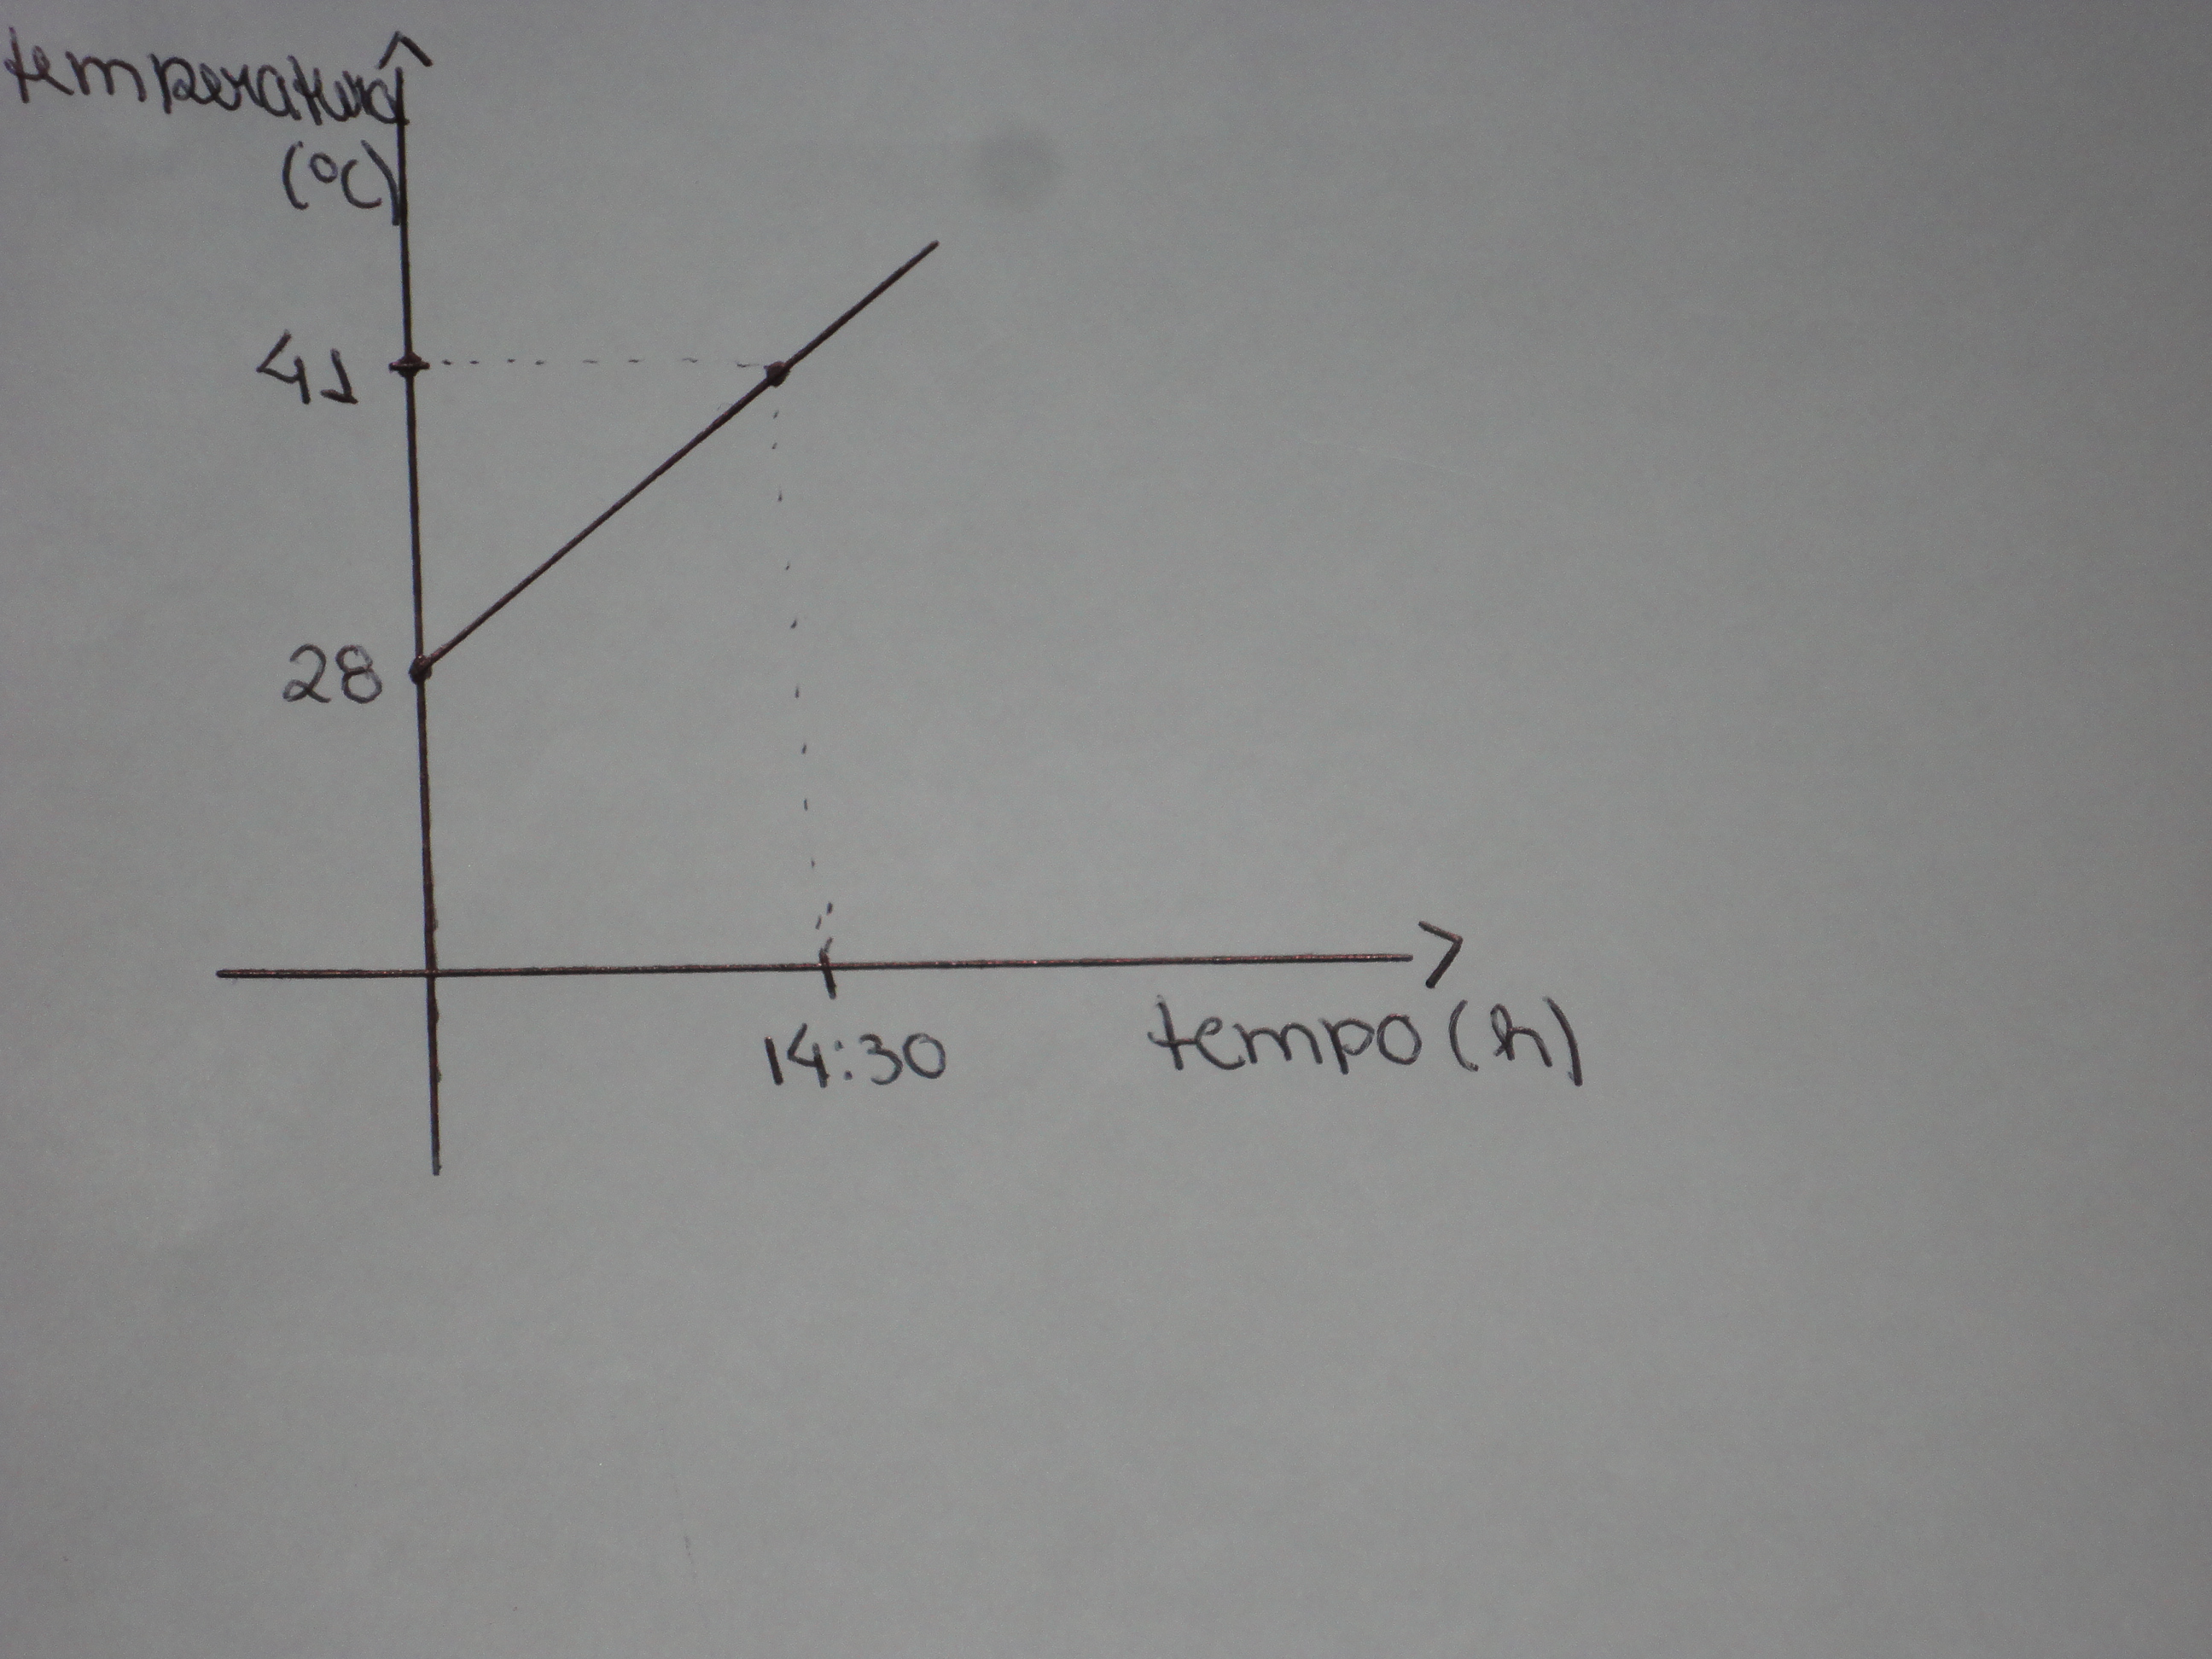 temperatura
(°C)
41
28
14:30
tempo (h)